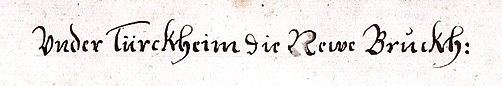 Vnder Türckheim die Newe Bruckh: